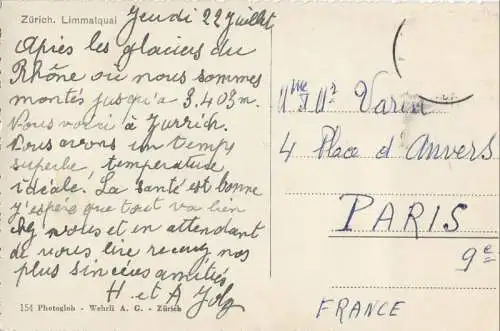 Zürich. Limmatquai
Jeudi 22 Juillet
Après les glaciers du
Rhône où nous sommes
montés jusqu'a 3.403m.
Nous voici à Zurrich.
Nous avons un temps
superbe, température
idéale. La santé est bonne
j'espère que tout va bien
chez vous et en attendant
de vous lire recevez nos
plus sincères amitiés
H et A
151 Photoglob - Wehrli A. G. - Zürich
Mme et Mr Varin
4 Place d'Anvers
PARIS
9e
FRANCE